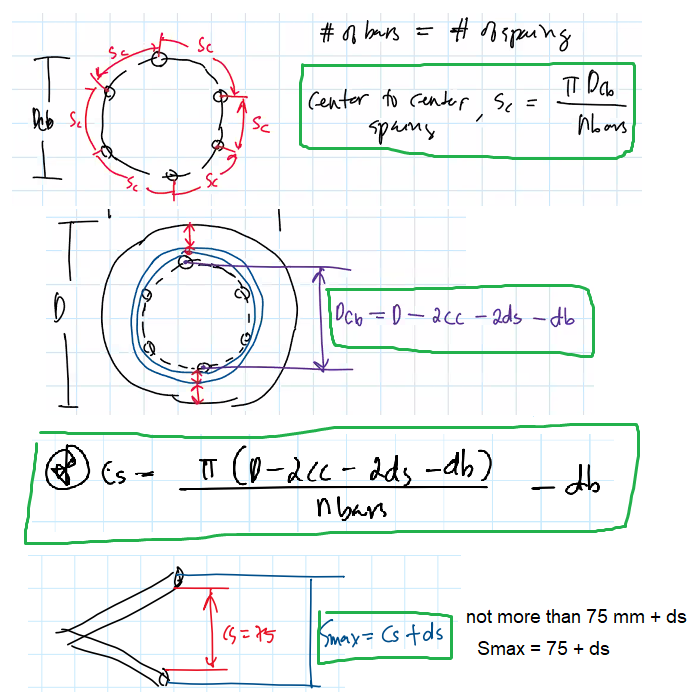 # of bars = # of spacing
Sc
Sc
Dcb
Sc
Sc
Sc
Sc
Center to center spacing, Sc = π Dcb / nbars
D
Dcb = D - 2cc - 2ds - db
Cs = π (D - 2cc - 2ds - db) / nbars - db
Cs = 75
Smax = Cs + ds
not more than 75 mm + ds
Smax = 75 + ds